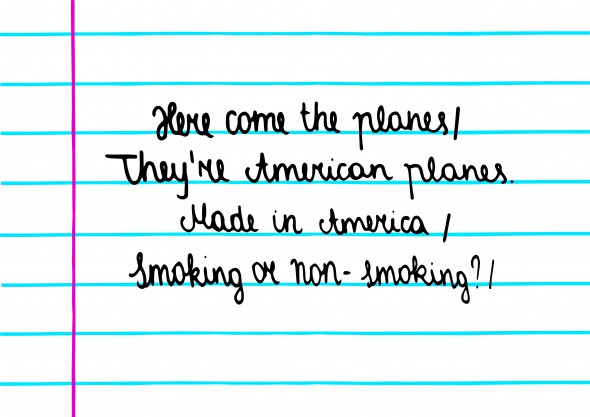 Here come the planes/
They're American planes.
Made in America /
Smoking or non-smoking?/